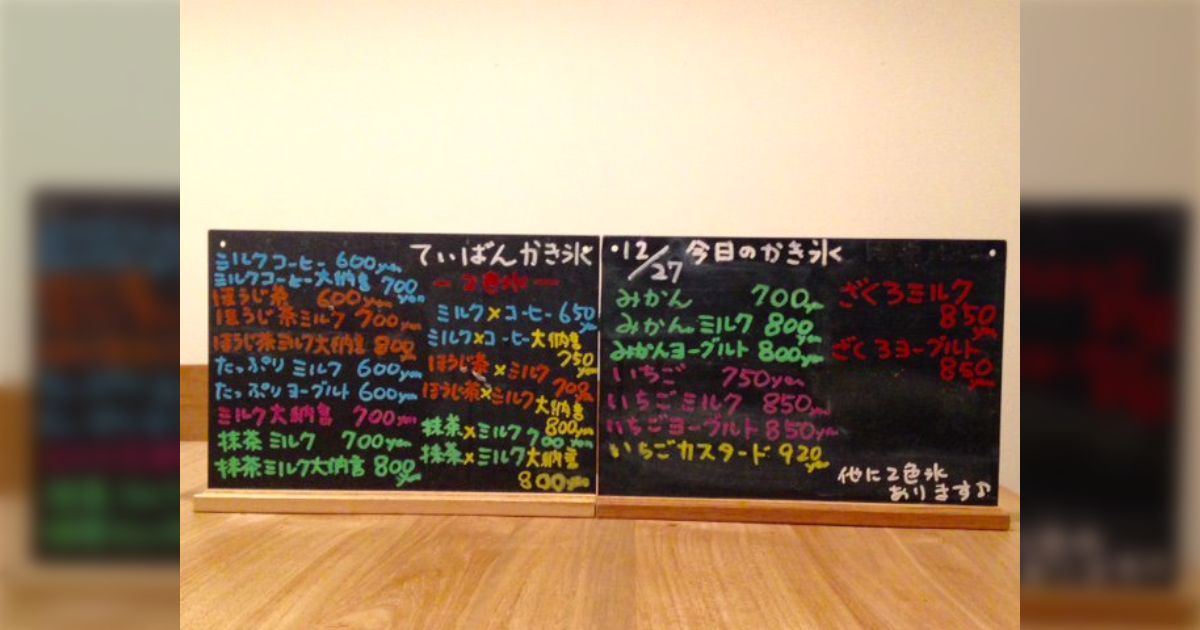 ていばんかき氷
ミルクコーヒー 600yen
ミルクコーヒー大納言 700yen
ほうじ茶 600yen
ほうじ茶ミルク 700yen
ほうじ茶ミルク大納言 800yen
たっぷりミルク 600yen
たっぷりヨーグルト 600yen
ミルク大納言 700yen
抹茶ミルク 700yen
抹茶ミルク大納言 800yen
ー2色氷ー
ミルク×コーヒー 650yen
ミルク×コーヒー大納言
750yen
ほうじ茶×ミルク 700yen
ほうじ茶×ミルク
大納言
800yen
抹茶×ミルク 700yen
抹茶×ミルク大納言
800yen
12/27 今日のかき氷
みかん 700yen
みかんミルク 800yen
みかんヨーグルト 800yen
いちご 750yen
いちごミルク 850yen
いちごヨーグルト 850yen
いちごカスタード 920yen
ざくろミルク
850yen
ざくろヨーグルト
850yen
他に2色氷
あります♪